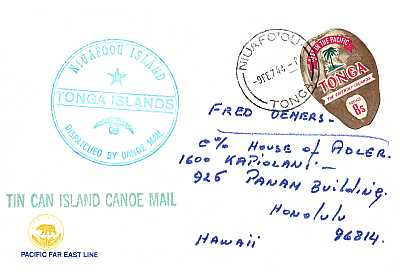 NIUAFOOU ISLAND
TONGA ISLANDS
DISPATCHED BY CANOE MAIL
NIUAFO'OU
TONGA
IN THE PACIFIC
TONGA
THE FRIENDLY ISLANDS
8s
FRED DEMERS -
c/o House of ADLER.
1600 KAPIOLANI -
926 PANAM Building.
Honolulu
HAWAII 96814.
TIN CAN ISLAND CANOE MAIL
PACIFIC FAR EAST LINE